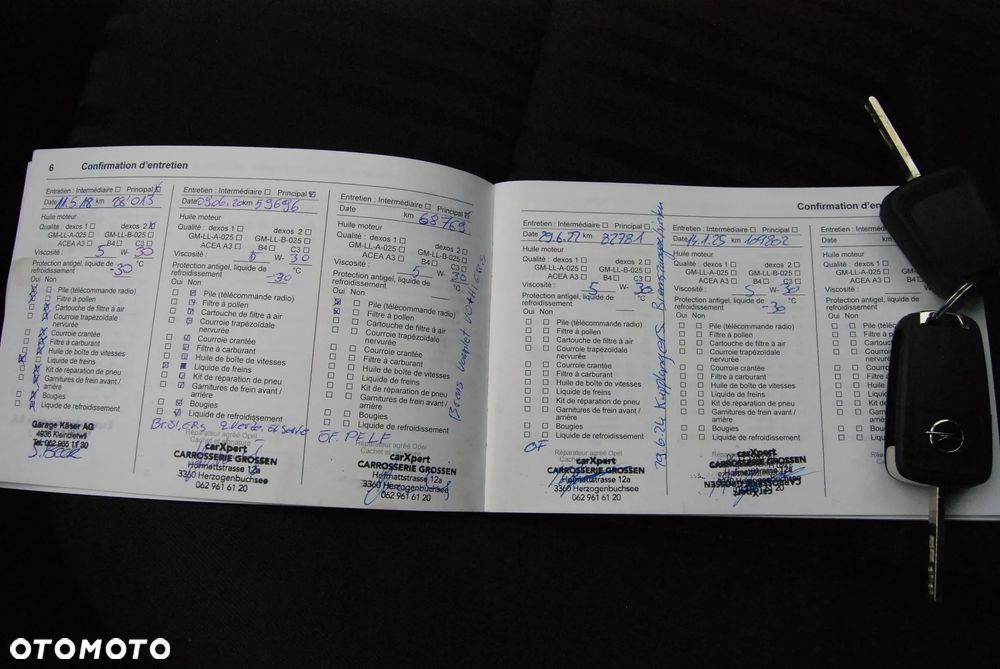 6 Confirmation d'entretien
Entretien : Intermédiaire Principal
Date 11.5.18 km 28'013
Huile moteur
Qualité : dexos 1 dexos 2
GM-LL-A-025 GM-LL-B-025
ACEA A3 B4 C3
Viscosité : 5 W- 30
Protection antigel, liquide de
refroidissement -30 °C
Oui Non
Pile (télécommande radio)
Filtre à pollen
Cartouche de filtre à air
Courroie trapézoïdale
nervurée
Courroie crantée
Filtre à carburant
Huile de boîte de vitesses
Liquide de freins
Kit de réparation de pneu
Garnitures de frein avant /
arrière
Bougies
Liquide de refroidissement
Garage Käser AG
4936 Kleindietwil
Entretien : Intermédiaire Principal
Date 09.06.20 km 59696
Huile moteur
Qualité : dexos 1 dexos 2
GM-LL-A-025 GM-LL-B-025
ACEA A3 B4 C3
Viscosité : 5 W- 30
Protection antigel, liquide de
refroidissement -30 °C
Oui Non
Pile (télécommande radio)
Filtre à pollen
Cartouche de filtre à air
Courroie trapézoïdale
nervurée
Courroie crantée
Filtre à carburant
Huile de boîte de vitesses
Liquide de freins
Kit de réparation de pneu
Garnitures de frein avant /
arrière
Bougies
Liquide de refroidissement
Réparateur agréé Opel
Cachet et signature
carXpert
CARROSSERIE GROSSEN
Hofmattstrasse 12a
3360 Herzogenbuchsee
062 961 61 20
Entretien : Intermédiaire Principal
Date km 68769
Huile moteur
Qualité : dexos 1 dexos 2
GM-LL-A-025 GM-LL-B-025
ACEA A3 B4 C3
Viscosité : 5 W- 30
Protection antigel, liquide de
refroidissement °C
Oui Non
Pile (télécommande radio)
Filtre à pollen
Cartouche de filtre à air
Courroie trapézoïdale
nervurée
Courroie crantée
Filtre à carburant
Huile de boîte de vitesses
Liquide de freins
Kit de réparation de pneu
Garnitures de frein avant /
arrière
Bougies
Liquide de refroidissement
ÖF. PF. LF
Réparateur agréé Opel
carXpert
CARROSSERIE GROSSEN
Hofmattstrasse 12a
3360 Herzogenbuchsee
062 961 61 20
Confirmation d'en
Entretien : Intermédiaire Principal
Date 29.6.22 km 82781
Huile moteur
Qualité : dexos 1 dexos 2
GM-LL-A-025 GM-LL-B-025
ACEA A3 B4 C3
Viscosité : 5 W- 30
Protection antigel, liquide de
refroidissement °C
Oui Non
Pile (télécommande radio)
Filtre à pollen
Cartouche de filtre à air
Courroie trapézoïdale
nervurée
Courroie crantée
Filtre à carburant
Huile de boîte de vitesses
Liquide de freins
Kit de réparation de pneu
Garnitures de frein avant /
arrière
Bougies
Liquide de refroidissement
ÖF
Réparateur agréé Opel
carXpert
CARROSSERIE GROSSEN
Hofmattstrasse 12a
3360 Herzogenbuchsee
062 961 61 20
Entretien : Intermédiaire Principal
Date 14.1.25 km 104802
Huile moteur
Qualité : dexos 1 dexos 2
GM-LL-A-025 GM-LL-B-025
ACEA A3 B4 C3
Viscosité : 5 W- 30
Protection antigel, liquide de
refroidissement -30 °C
Oui Non
Pile (télécommande radio)
Filtre à pollen
Cartouche de filtre à air
Courroie trapézoïdale
nervurée
Courroie crantée
Filtre à carburant
Huile de boîte de vitesses
Liquide de freins
Kit de réparation de pneu
Garnitures de frein avant /
arrière
Bougies
Liquide de refroidissement
carXpert
CARROSSERIE GROSSEN
Hofmattstrasse 12a
Entretien : Intermédiaire
Date km
Huile moteur
Qualité : dexos 1
GM-LL-A-025
ACEA A3
Viscosité :
Protection antigel, liquide
refroidissement
Oui Non
OTOMOTO